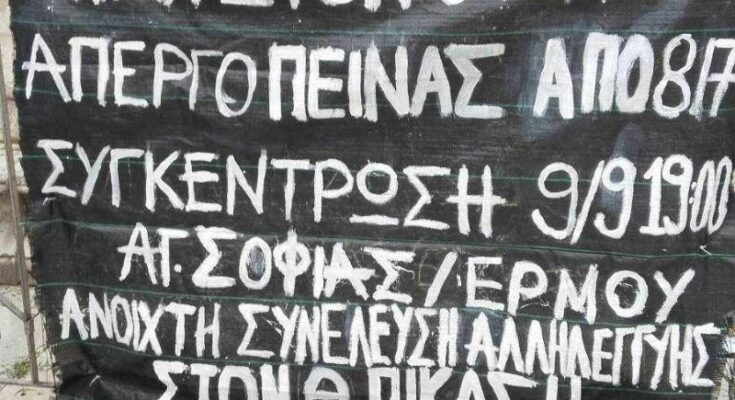 ΑΠΕΡΓΟ ΠΕΙΝΑΣ ΑΠΟ 8/7
ΣΥΓΚΕΝΤΡΩΣΗ 9/9 19:00
ΑΓ. ΣΟΦΙΑΣ / ΕΡΜΟΥ
ΑΝΟΙΧΤΗ ΣΥΝΕΛΕΥΣΗ ΑΛΛΗΛΕΓΓΥΗΣ
ΣΤΟΝ Θ.